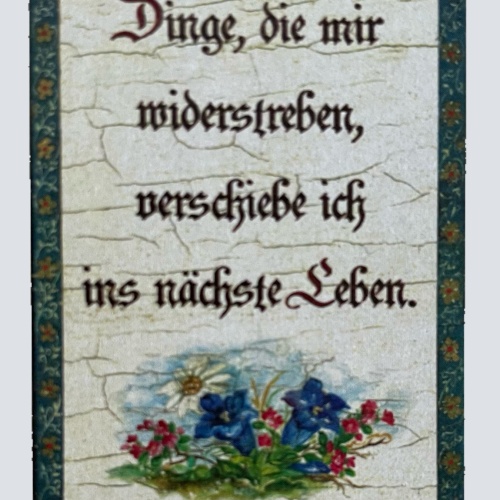 Dinge, die mir
widerstreben,
verschiebe ich
ins nächste Leben.